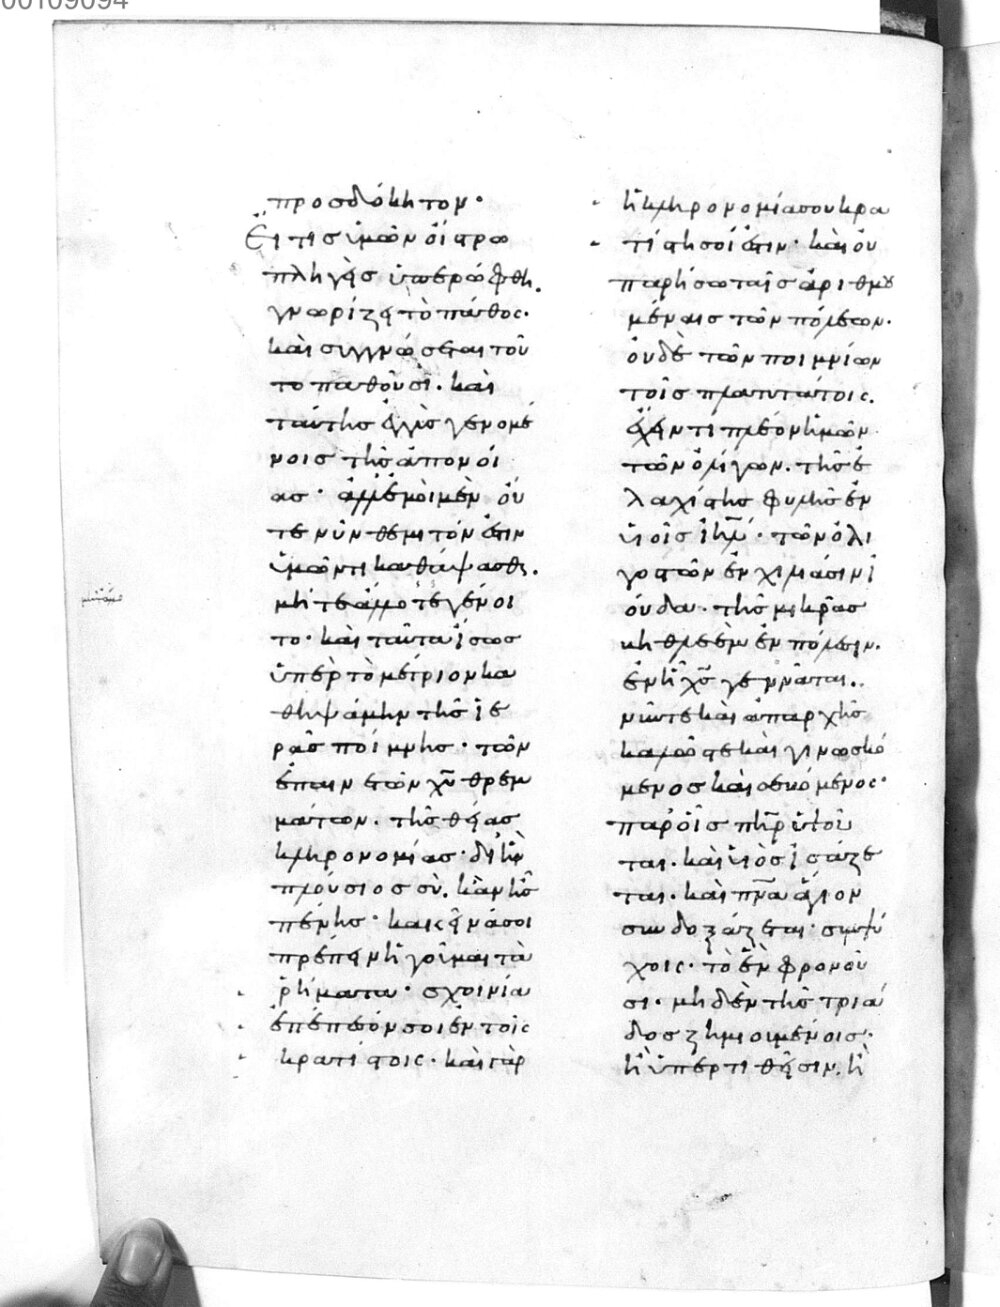 00109094
προσδόκητον·
Εἴ τις ὑμῶν οἴστρω
πληγεὶς ὑπερώφθη.
γνωρίζει τὸ πάθος·
καὶ συγγνώσεται τοῦ
το παθοῦσι. καὶ
ταύτης ἐγγὺς γενομέ
νοις τῆς ἀπονοί
ας· ἀλλ' ἐμοὶ μὲν οὐ
τε νῦν θεμιτόν ἐστιν
ὑμῶν τι καθάψασθαι.
μήτε ἄλλοτε γένοι
το· καὶ ταῦτα ἴσως
ὑπὲρ τὸ μέτριον κα
θηψάμην τῆς ἱε
ρᾶς ποίμνης· τῶν
ἐπαινετῶν χ̅υ̅ θρεμ
μάτων. τῆς θείας
κληρονομίας· δι' ἣν
πλούσιος σὺ. κἂν ᾖς
πένης· καὶ εἰ νά σοι
πρέπειν ἡγοῦμαι τὰ
ῥήματα· σχοινία
ἐπέπεσόν σοι ἐν τοῖς
κρατίστοις· καὶ γὰρ
ἡ κληρονομία σου κρα
τίστη σοί ἐστιν· καὶ οὐ
παρήσω ταῖς ἀριθμου
μέναις τῶν πόλεων.
οὐδὲ τῶν ποιμνίων
τοῖς πλατυτάτοις.
ἔχειν τι πλέον ἡμῶν
τῶν ὀλίγων. τῆς ἐ
λαχίστης φυλῆς ἐν
υἱοῖς ι̅η̅λ̅· τῶν ὀλι
γοστῶν ἐν χιλιάσιν ἰ
ούδα· τῆς μικρᾶς
βηθλεὲμ ἐν πόλεσιν.
ἐν ᾗ χ̅ς̅ γεννᾶται.
νῦν τε καὶ ἀπαρχῆς
καλῶς τε καὶ γινωσκό
μενος καὶ σεβόμενος·
παρ' οἷς π̅η̅ρ̅ ὑψοῦ
ται. καὶ υἱὸς ἰσάζε
ται. καὶ π̅ν̅α̅ ἅγιον
συνδοξάζεται· συμψύ
χοις· τὸ ἓν φρονοῦ
σι. μηδὲν τῆς τριά
δος ζημιουμένοις·
ἢ ὑπερτιθέσιν. ἢ